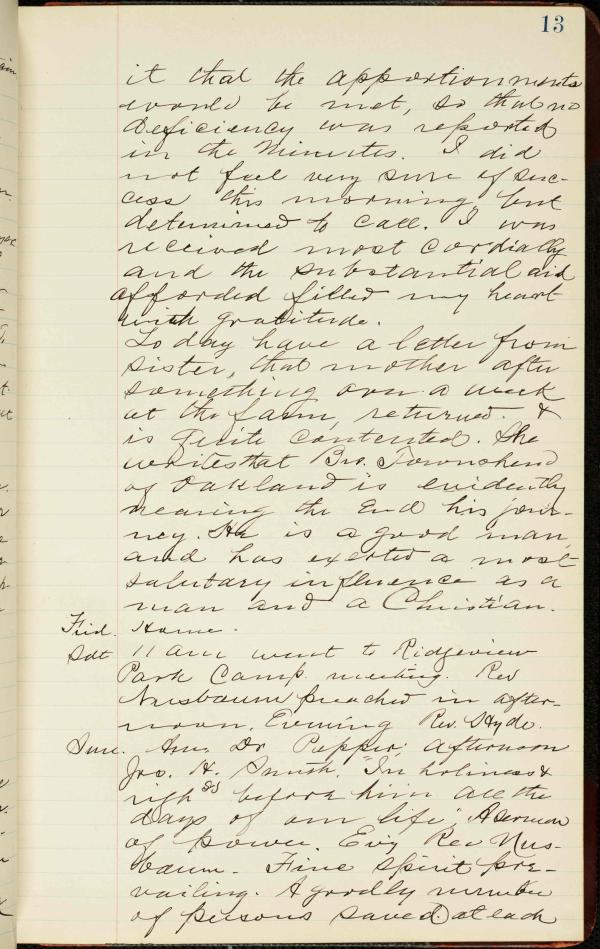 13
it that the apportionments
would be met, so that no
deficiency was reported
in the Minutes. I did
not feel very sure of suc-
cess this morning, but
determined to call. I was
received most cordially
and the substantial aid
afforded filled my heart
with gratitude.
To day have a letter from
sister, that mother after
something over a week
at the farm, returned &
is quite contented. She
writes that Bro. Townshend
of Oakland is evidently
nearing the End his jour-
ney. He is a good man,
and has exerted a most
salutary influence as a
man and a Christian.
Frid. Home.
Sat 11 am went to Ridgeview
Park Camp meeting. Rev
Nusbaum preached in after-
noon, Evening Rev. Hyde.
Sun. Am. Dr Pepper; afternoon
Jno. H. Smith. "In holiness &
righ ss before him all the
days of our life", A sermon
of power. Evg Rev Nus-
baum. Fine spirit pre-
vailing. A goodly number
of persons saved at each